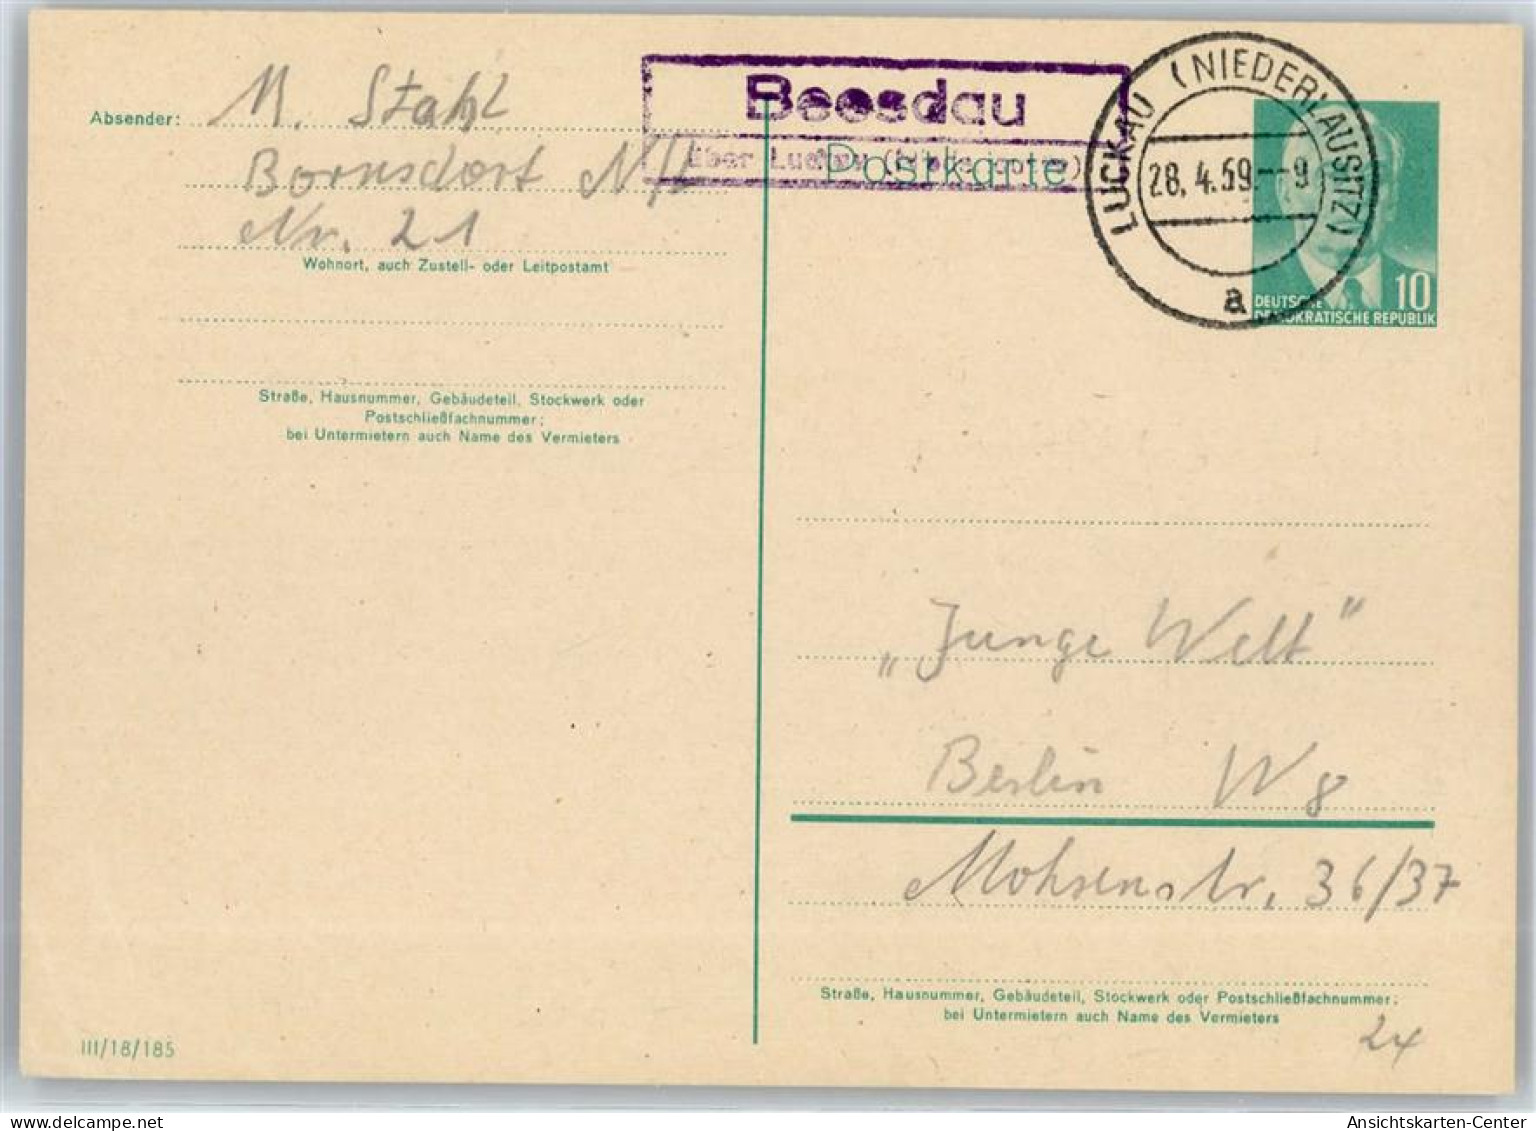 Absender: M. Stahl
Bornsdorf N/L
Nr. 21
Wohnort, auch Zustell- oder Leitpostamt
Straße, Hausnummer, Gebäudeteil, Stockwerk oder
Postschließfachnummer;
bei Untermietern auch Name des Vermieters
III/18/185
Beesdau
über Luckau
Postkarte
LUCKAU (NIEDERLAUSITZ)
28.4.59.--9
a
10
DEUTSCHE
DEMOKRATISCHE REPUBLIK
„Junge Welt"
Berlin W 8
Mohrenstr. 36/37
Straße, Hausnummer, Gebäudeteil, Stockwerk oder Postschließfachnummer;
bei Untermietern auch Name des Vermieters
2x
Ansichtskarten-Center